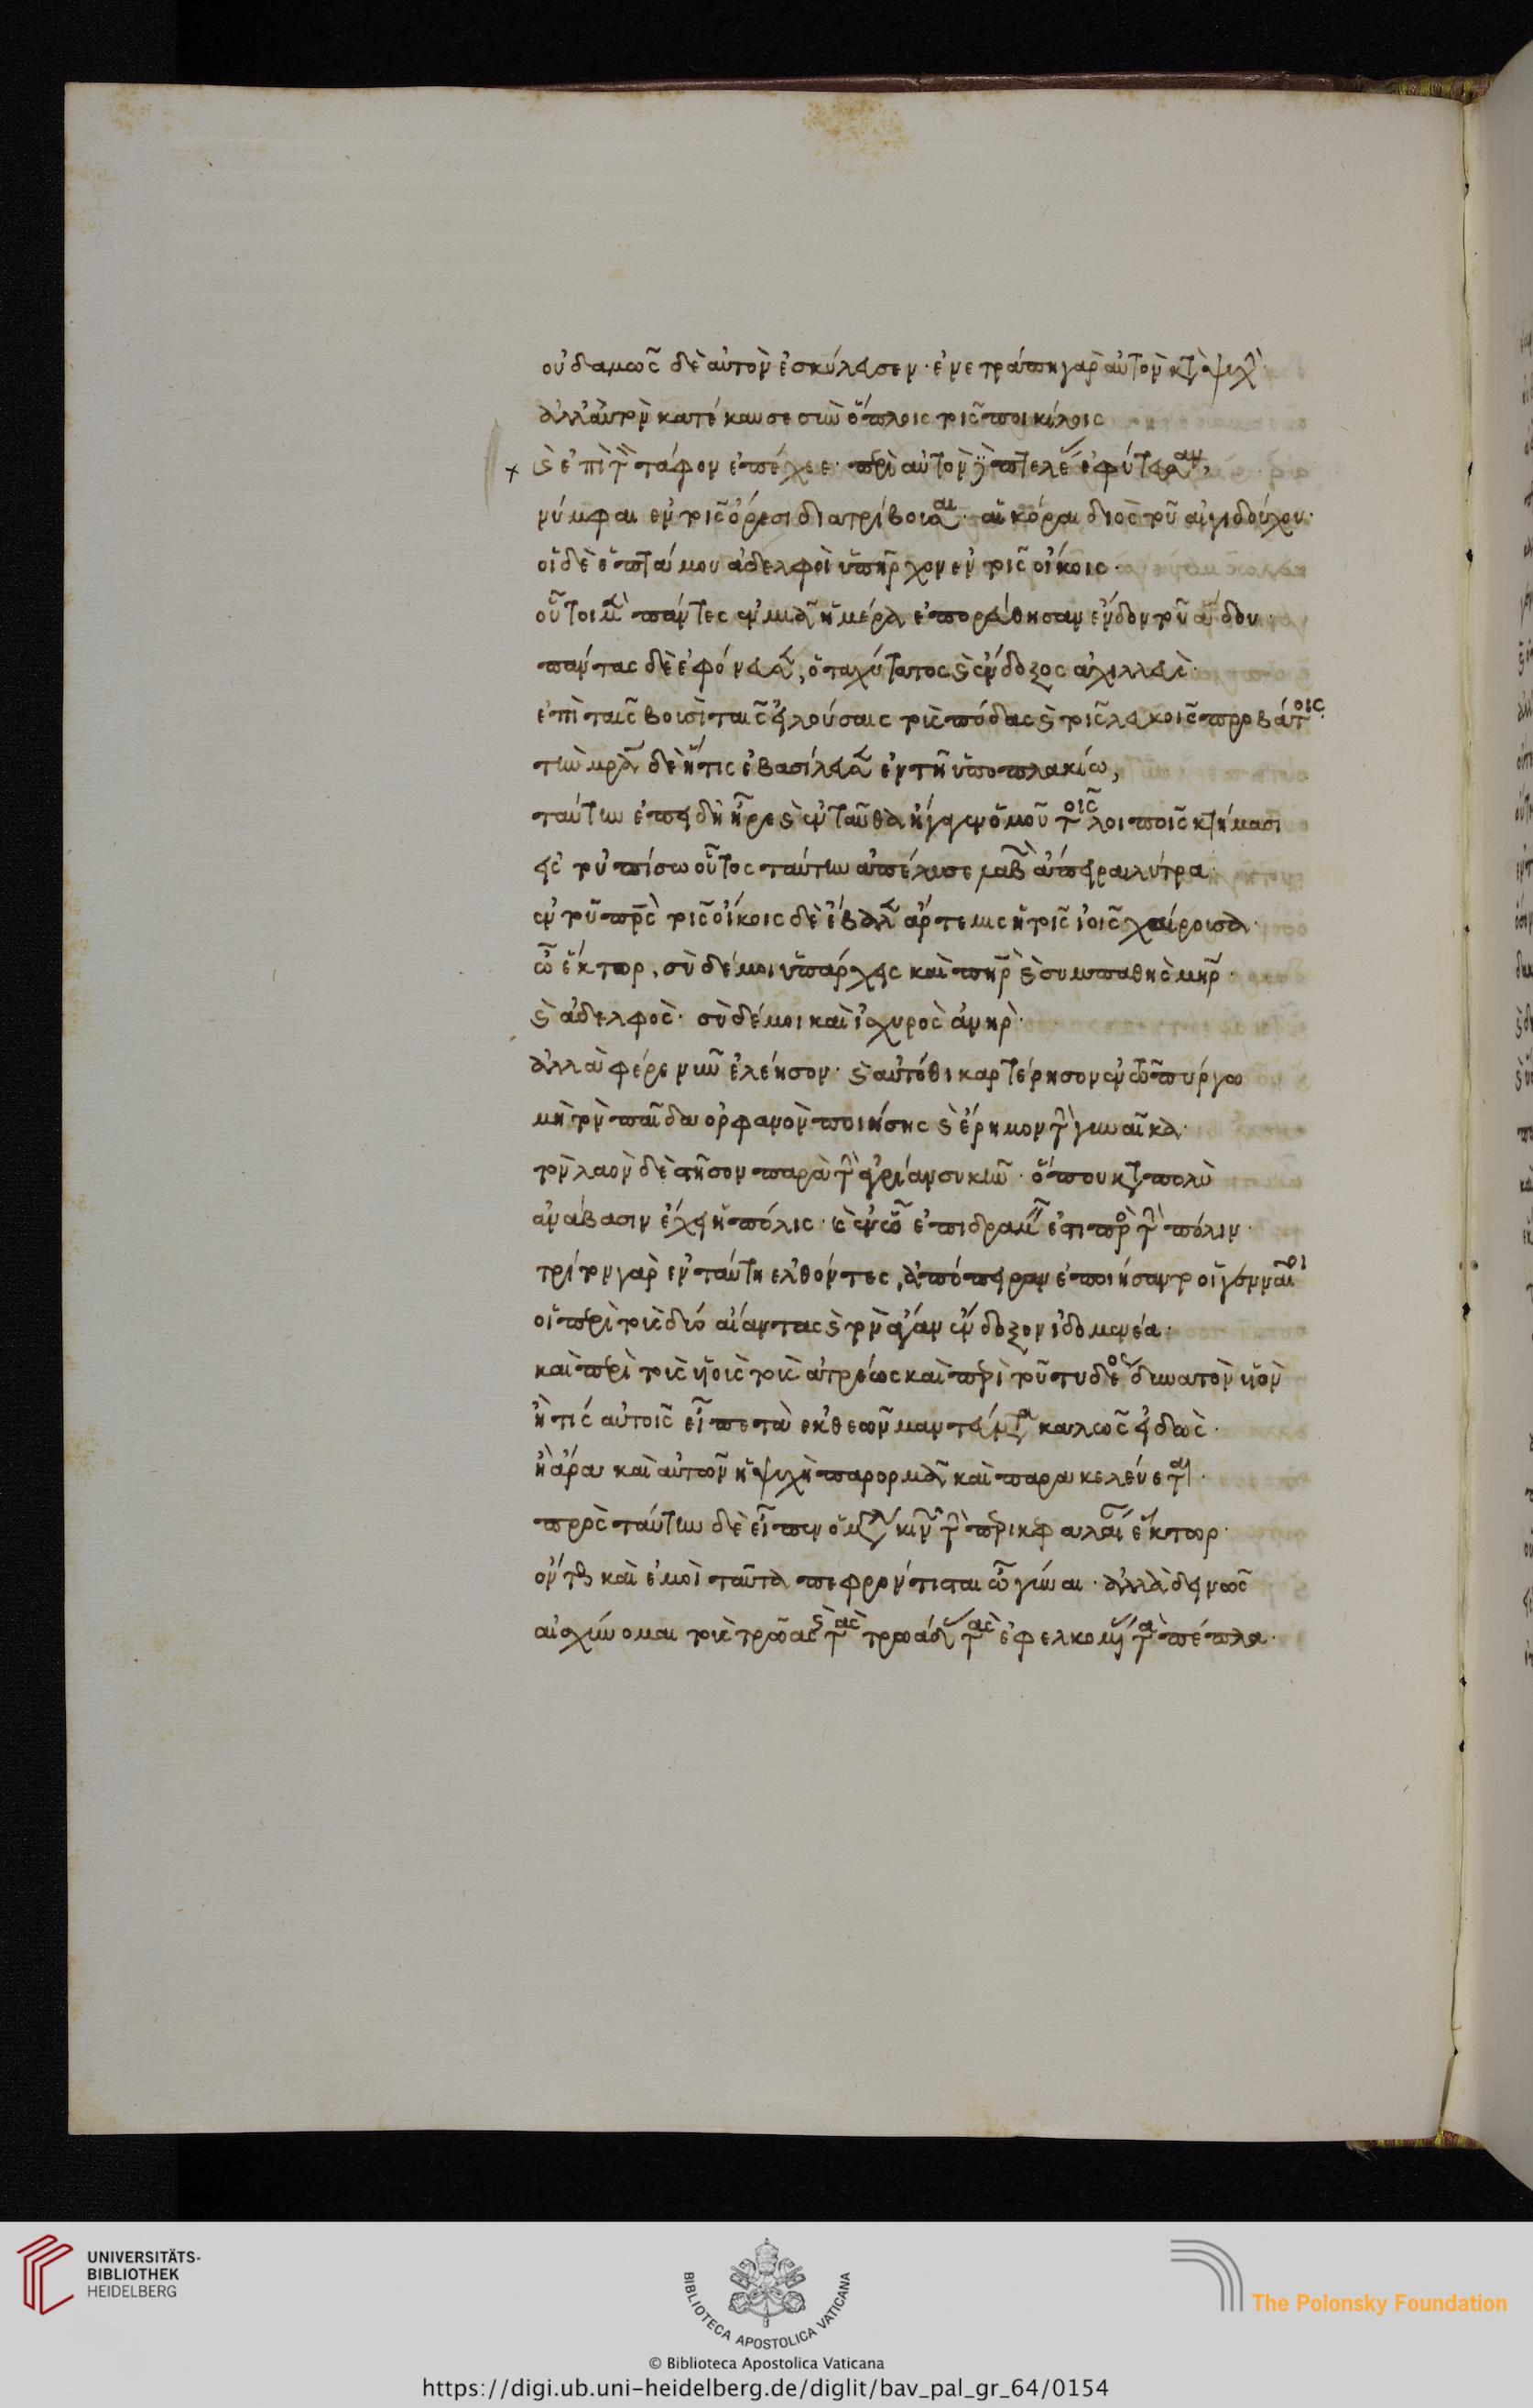 οὐδαμῶς δὲ αὐτὸν ἐσκύλευσεν· ἐνετράπη γὰρ αὐτὸν κτ ψυχ
ἀλλ' αὐτὸν κατέκαυσε σὺν ὅπλοις τοῖς ποικίλοις
καὶ ἐπὶ τ τάφον ἐπέχεε· περὶ αὐτὸν πτελέ ἐφύτευσαν,
νύμφαι ἐν τοῖς ὄρεσι διατρίβουσαι· αἱ κόραι διὸς τοῦ αἰγιδούχου·
οἳ δὲ ἑπτά μου ἀδελφοὶ ὑπῆρχον ἐν τοῖς οἴκοις·
οὗτοι μ πάντες ἐν μιᾷ ἡμέρᾳ ἐπορεύθησαν ἔνδον τοῦ ᾅδου·
πάντας δὲ ἐφόνευσ, ὁ ταχύτατος καὶ ἔνδοξος ἀχιλλεὺς·
ἐπὶ ταῖς βουσὶ ταῖς εἱλούσαις τοὺς πόδας καὶ τοῖς λευκοῖς προβάτοις·
τὴν μρα δὲ ἥτις ἐβασίλευσ ἐν τῇ ὑποπλακίῳ,
ταύτην ἐπειδὴ ἦρε καὶ ἐνταῦθα ἤγαγεν ὁμοῦ τοῖς λοιποῖς κτήμασι
εἰς τὸ πίσω οὗτος ταύτην ἀπέλυσε λαβ ἄπειρα λύτρα·
ἐν τοῦ πρς τοῖς οἴκοις δὲ ἔβαλ ἄρτεμις ἡ τοῖς ἰοῖς χαίρουσα·
ὦ ἕκτορ, σὺ δέ μοι ὑπάρχεις καὶ πηρ καὶ συμπαθὴς μηρ·
καὶ ἀδελφὸς· σὺ δέ μοι καὶ ἰσχυρὸς ἀνὴρ·
ἀλλὰ φέρε νῦν ἐλέησον· καὶ αὐτόθι καρτέρησον ἐν τῷ πύργῳ
μὴ τὸν παῖδα ὀρφανὸν ποιήσῃς καὶ ἔρημον τ γυναῖκα·
τὸν λαὸν δὲ στῆσον παρὰ τ ἀγρίαν συκῆν· ὅπου κτ πολὺ
ἀνάβασιν ἔχει ἡ πόλις· καὶ ἐν ᾧ ἐπιδραμ ἐστι πρὸ τ πόλιν·
τρίτον γὰρ ἐν ταύτῃ ἐλθόντες, ἀπόπειραν ἐποιήσαντο οἱ γενναῖοι
οἱ περὶ τοὺς δύο αἴαντας καὶ τὸν ἄγαν ἔνδοξον ἰδομενέα·
καὶ περὶ τοὺς υἱοὺς τοὺς ἀτρέως καὶ περὶ τοῦ τυδέος δυνατὸν υἱὸν
ἤ τις αὐτοῖς εἶπε τὰ ἐκ θεῶν μαντεύμ καλῶς εἰδὼς·
ἢ ἄρα καὶ αὐτῶν ἡ ψυχὴ παρορμᾷ καὶ παρακελεύεται·
πρὸς ταύτην δὲ εἶπεν ὁ μ κιν τ περικφαλαί ἕκτωρ·
ὄντ καὶ ἐμοὶ ταῦτα πεφρόντισται ὦ γύναι· ἀλλὰ δεινῶς
αἰσχύνομαι τοὺς τρῶας καὶ τὰς τρωάδ τὰς ἐφελκομ τὰ πέπλα·
UNIVERSITÄTS-
BIBLIOTHEK
HEIDELBERG
BIBLIOTECA APOSTOLICA VATICANA
The Polonsky Foundation
© Biblioteca Apostolica Vaticana
https://digi.ub.uni-heidelberg.de/diglit/bav_pal_gr_64/0154